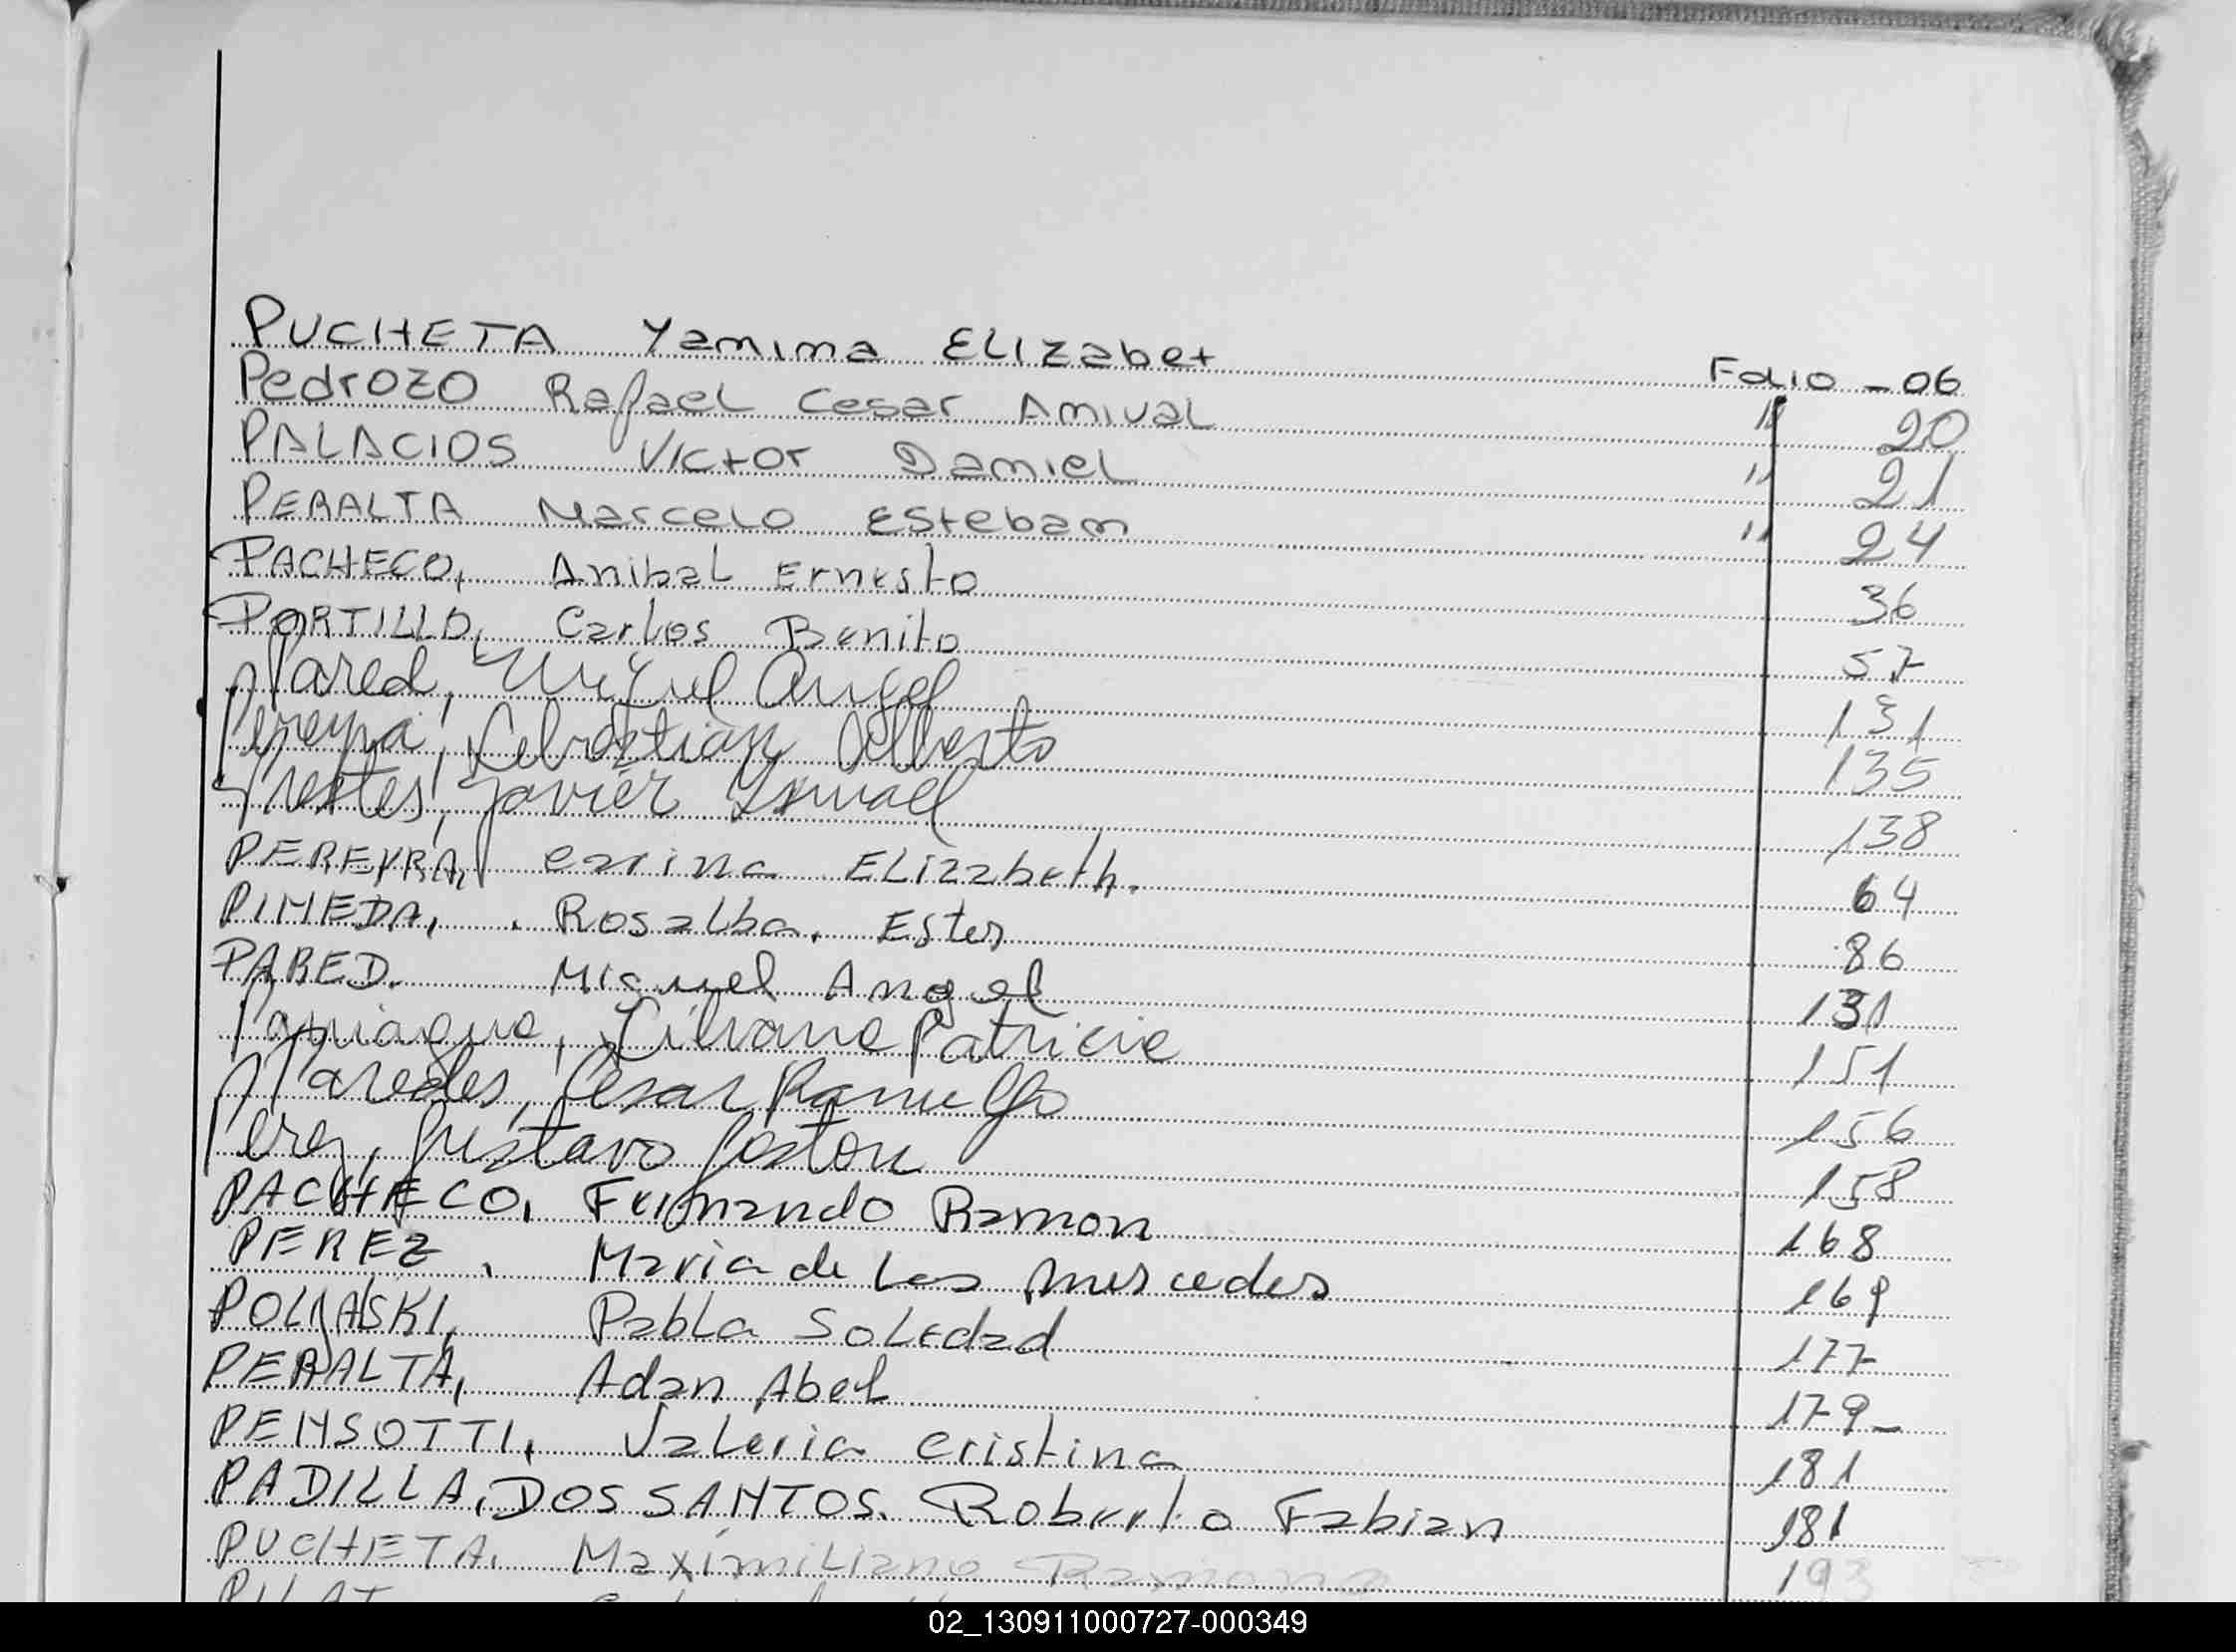 PUCHETA Yamima ELIZabet Folio - 06
PedrOZO Rafael Cesar Amival " 20
PALACIOS Victor Daniel " 21
PERALTA Marcelo Estebam " 24
PACHECO, Anibal Ernesto 36
PORTILLO, Carlos Benito 57
Pared, Miguel Angel 131
Pereyra, Sebastian Alberto 135
Prestes, Javier Ismael 138
PEREYRA, Carina ELizabeth. 64
PINEDA, Rosalba. Ester 86
PARED. Miguel Angel 131
Paniagua, Liliana Patricia 151
Paredes, Cesar Ramulfo 156
Perez, Gustavo Gaston 158
PACHECO, Fernando Ramon 168
PEREZ, Maria de Las Mercedes 169
Pabla Soledad 177
PERALTA, Adan Abel 179-
PENSOTTI, Valeria Cristina 181
PADILLA, DOS SANTOS. Roberto Fabian 181
PUCHETA. Maximiliano 193
02_130911000727-000349